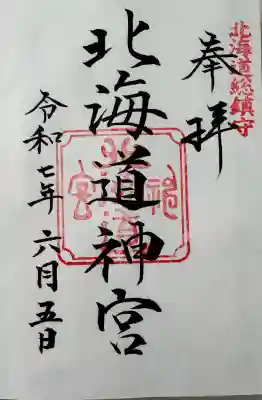 北海道総鎮守
奉拝
北海道神宮
令和七年六月五日